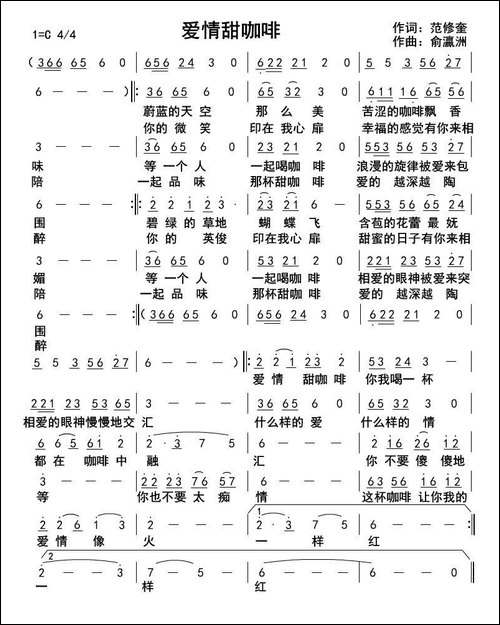 爱情甜咖啡
1=C 4/4
作词：范修奎
作曲：俞瀛洲
(3 6 6 6 5 6 0 6 5 6 2 4 3 0 6 2 2 2 1 6 0 5 5 3 5 6 2 7
6 - - -) 3 6 2 6 5 6 0 6 5 3 2 3 0 2 1 2 3 6 5 6 1
蔚蓝的天空 那么美 苦涩的咖啡飘香
你的微笑 印在我心扉 幸福的感觉有你来相
3 - - - 3 6 6 5 6 0 2 2 1 2 3 0 5 5 3 5 3 2 3 5 6 2 7
味 等一个人 一起喝咖啡 浪漫的旋律被爱来包
陪 一起品味 那杯甜咖啡 爱的越深越陶
围 碧绿的草地 蝴蝶飞 含苞的花蕾最妩
醉 你的英俊 印在我心扉 甜蜜的日子有你来相
3 - - - 3 6 6 5 6 0 2 2 1 2 3 0 2 2 1 2 3 5 3 2 7
媚 等一个人 一起喝咖啡 相爱的眼神被爱来突
陪 一起品味 那杯甜咖啡 爱的越深越陶
围
醉
5 5 3 5 6 2 7 6 - - -)
爱情甜咖啡 你我喝一杯
相爱的眼神慢慢地交汇 什么样的爱 什么样的情
都在咖啡中融汇 你不要傻傻地
等 你也不要太痴情 这杯咖啡让我的
1
爱情像火一样红
2
2 - - 3 7 - - 5 6 - - - 6 - - -
一样红